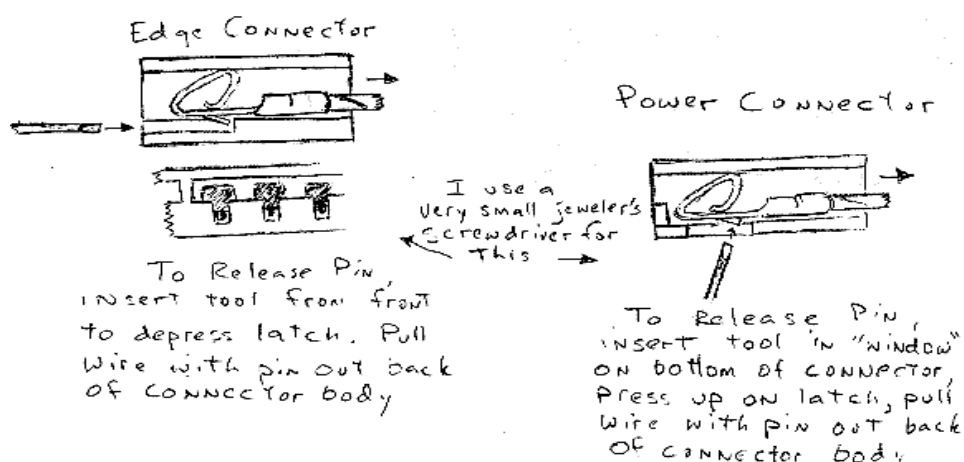 Edge Connector
Power Connector
I use a
very small jeweler's
screwdriver for
This
To Release Pin,
insert tool from front
to depress latch. Pull
wire with pin out back
of connector body
To Release Pin,
insert tool in "window"
on bottom of connector,
Press up on latch, pull
wire with pin out back
of connector body